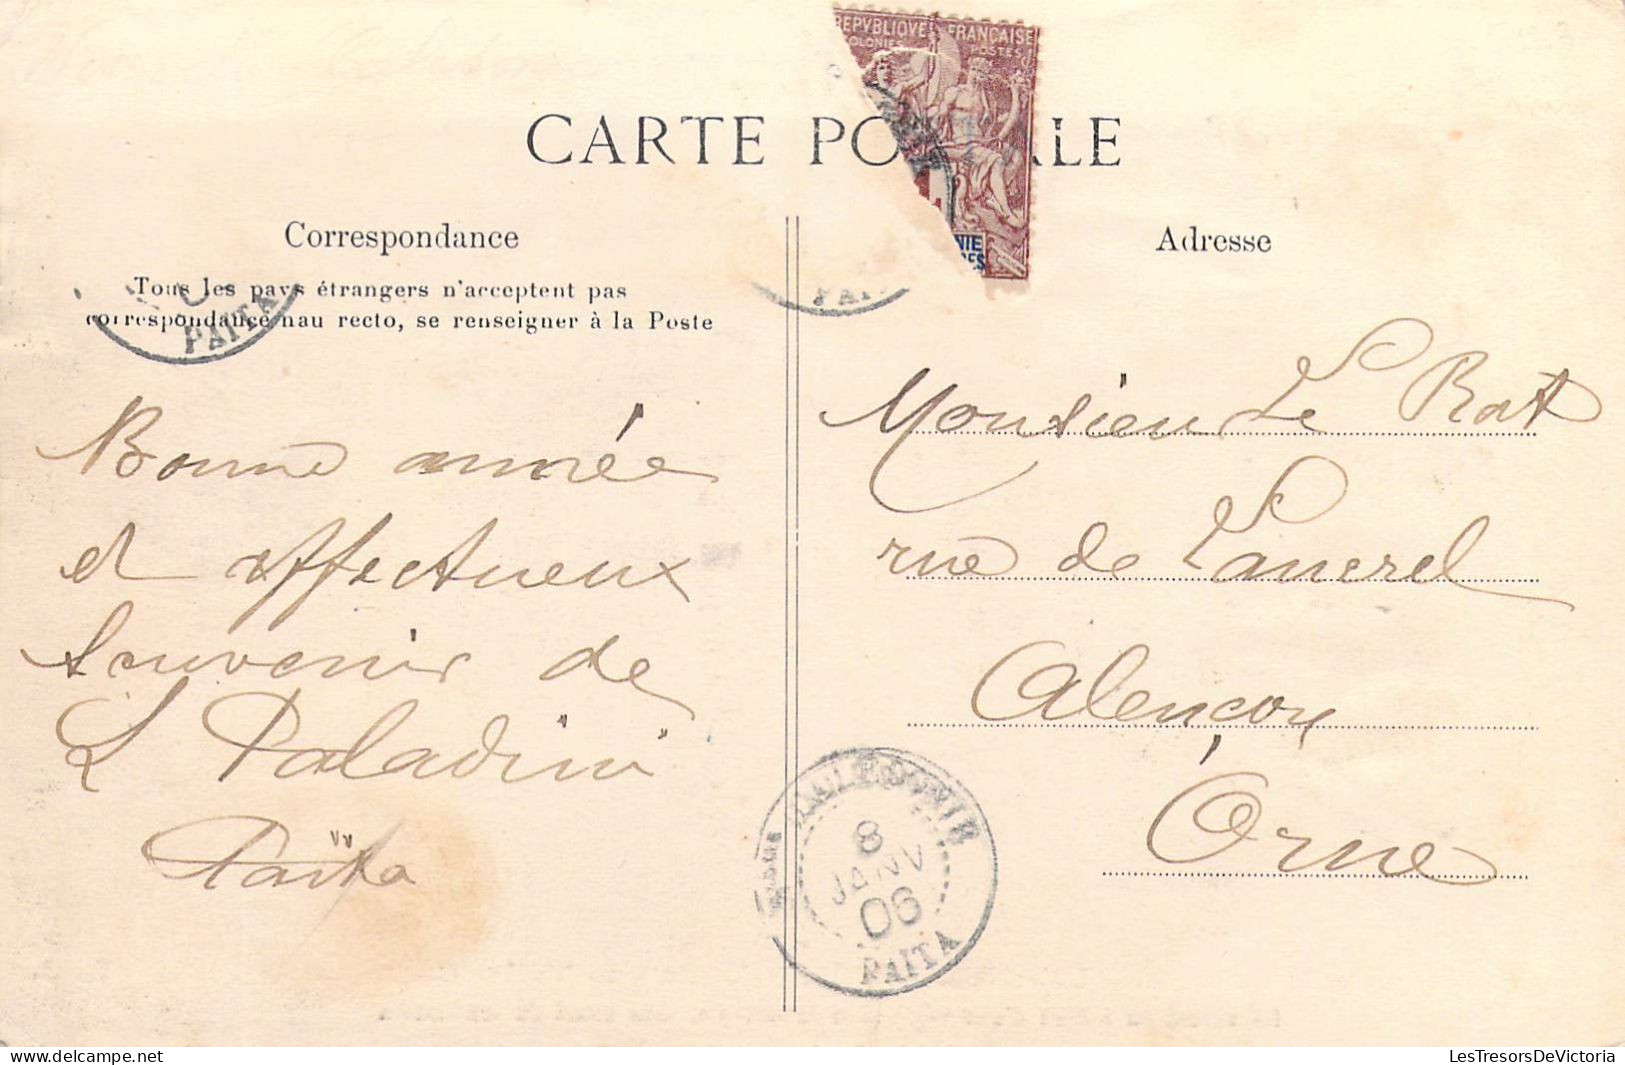 REPVBLIQVE FRANÇAISE
COLONIES POSTES
NIE
CARTE PO ALE
Correspondance
Tous les pays étrangers n'acceptent pas
correspondance au recto, se renseigner à la Poste
PAITA
PAITA
Bonne année
et affectueux
souvenir de
L Paladini
Païta
Adresse
Monsieur Le Rat
rue de Lancrel
Alençon
Orne
8
JANV
06
PAITA
LesTresorsDeVictoria